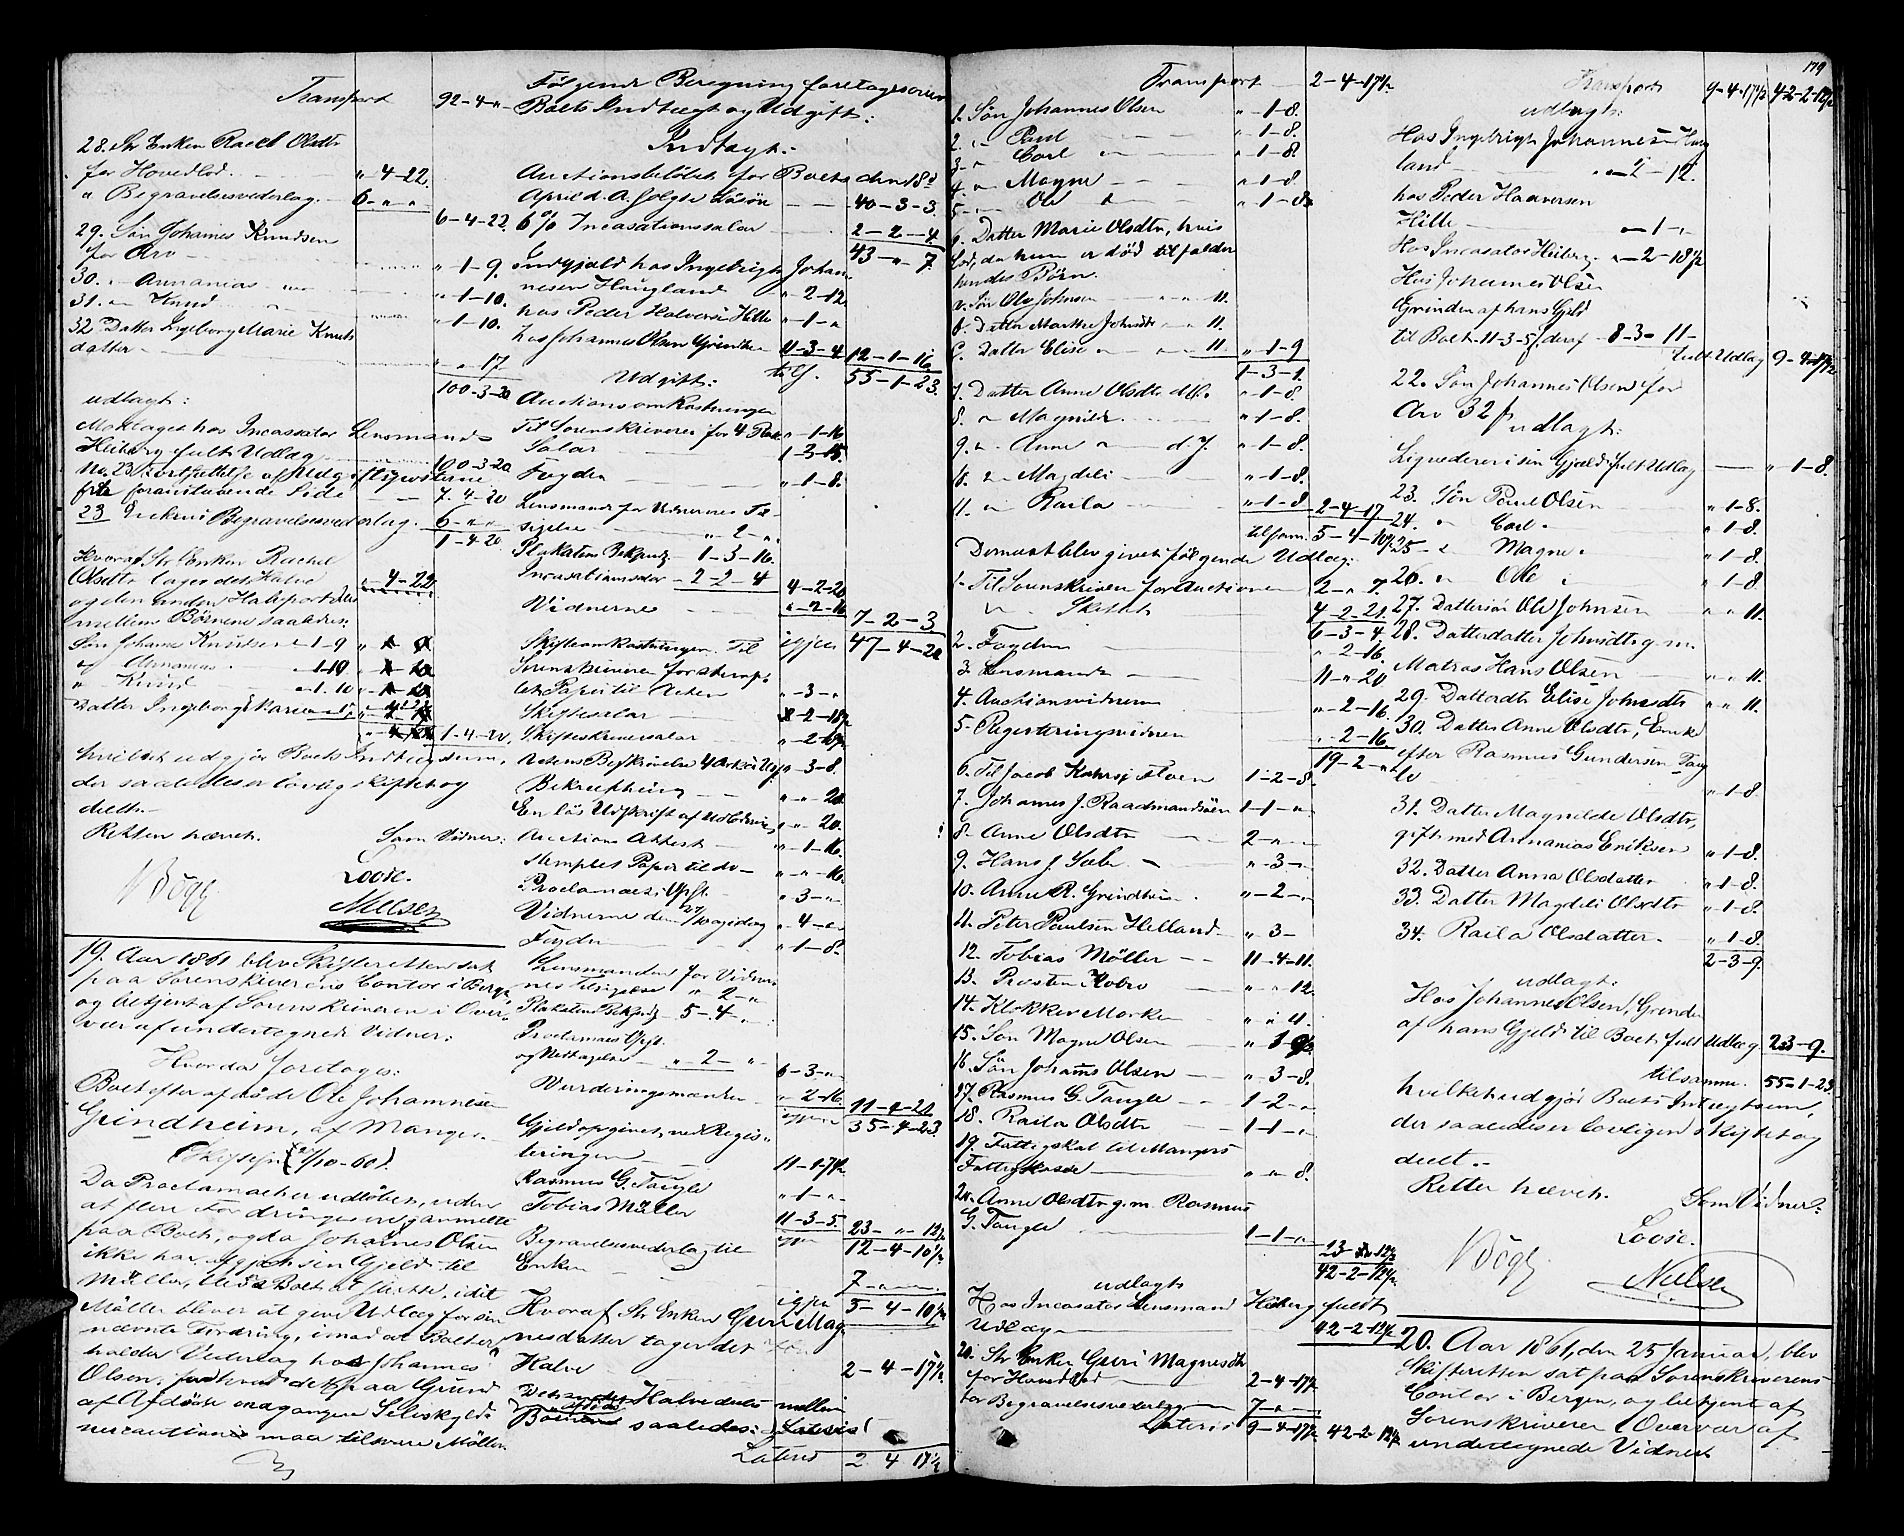 Transport 92-4-"
28. Str Enken Rachel Olsdtr
for Hovedlod " 4-22.
" Begravelsesvederlag 6-"-"
6-4-22.
29. Søn Johannes Knudsen
for Arv " 1-9.
30. " Annanias " " 1-10.
31. " Knud " " 1-10.
32 Datter Ingeborg Marie Knuds
datter " " 17
100-3-20
udlagt:
Modtages hos Incassator Lensmand
Heiberg fuldt Udlæg 100-3-20
No. 23 fra foranstaaende Side 7-4-20
23 Enkens Begravelsesvederlag 6-"-"
1-4-20
Hvoraf Str Enken Rachel
Olsdtr tager det Halve " 4-22
og den anden Halvpart deles
mellem Børnene saaledes:
Søn Johannes Knudsen " 1-9
" Annanias " 1-10
" Knud " 1-10
Datter Ingeborg Marie
1-4-20,
hvilket udgjør Boets Indtægtsum,
der saaledes er lovlig skiftet og
deelt.
Retten hævet. Som Vidner:
Bøgh Loose.
Nielsen
19. Aar 1861 blev Skifteretten sat
paa Sorenskriverens Contor i Bergen
og betjent af Sorenskriveren i Over-
vær af undertegnede Vidner:
Hvorda foretoges:
Boet efter afdøde Ole Johannesen
Grindheim, af Manger.
Da Proclamaet er udløbet, uden
at flere Fordringer ere anmeldte
paa Boet, og da Johannes Olsen
ikke har sin Gjeld til
Møller, Boet at slutte, idet
Møller bliver at give Udlæg for sin
nævnte Fordring, imod at Boet
holder Vederlag hos Johannes
Olsen, det paa Grund
af Afdøde indgangne Selvskyld-
nercaution maa tilsvare Møller
Følgende Beregning foretages over
Boets Indtægt og Udgift:
Indtægt:
Auctionsbeløbet for Boets den 8d
April d. A. solgte Løsøre 40-3-3.
6% Incasationssalar 2-2-4
43-"-7.
Indgjæld hos Ingebrigt Johan-
nesen Haugland " 2-12
hos Peder Halvorsen Hille " 1-"
hos Johannes Olsen Grindhe 11-3-4 12-1-16
tils. 55-1-23.
Udgift:
Auctionsomkostninger
Til Sorenskriveren for 4 Plak " 1-16
Salar 1-3-15.
Fogden " 1-8.
Lensmand for Vidnernes Til-
sigelse " 2-"
Plakaters Bekjendtg 1-3-16.
Incasationssalar 2-2-4 4-2-20
Vidnerne " 2-16
7-2-3
igjen 47-4-20
Skifteomkostninger. Til
Sorenskriveren for stemp-
let Papir til Acten " 3-"
Skiftesalar
Skifteskriversalar
Actens Beskrivelse 4 Ark " 3-8.
Bekræftning " " 20.
En løs Udskrift af Udlodning " " 20.
Auctions Attest " 1-16.
Stemplet Papir til do " " 16.
Proclamaets Opst. " 3-"
Vidnerne den 27/10 og idag " 4-"
Fogden " 1-8.
Lensmanden for Vidner-
nes Tilsigelse " 2-"
Plakaters Bekjendtg 5-4-"
Proclamaets Opst.
og Vedtagelse " 2-" 6-3-"
Vurderingsmænden " 2-16.
igjen 35-4-23.
Gjeld opgivet ved Regis-
teringen 11-1-7½
Rasmus G. Taugle " 1-"
Tobias Møller 11-3-5. 23-"-12½
igjen 12-4-10½
Begravelsesvederlag til
Enken 7-"-"
igjen 5-4-10½
Hvoraf Str Enken Guri Mag-
nesdatter tager det
Halve 2-4-17½
Halvedeles mellem
Børnene saaledes:
Lateris 2 4 17½
Transport 2-4-17½
1. Søn Johannes Olsen " 1-8.
2. " Poul " 1-8.
3 " Carl " " 1-8.
4. " Magne " 1-8.
5. " Ole " " 1-8.
6. Datter Marie Olsdtr, hvis
Lod, da hun er død tilfalder
hendes Børn.
a. Søn Ole Johnsen " " 11.
b. Datter Marthe Johnsdtr " " 11.
c. Datter Elise " " " 11. " 1-9
1-3-1.
7. Datter Anne Olsdtr d.Æ. " 1-8.
8. " Magnilde " 1-8.
9. " Anne " d.Y. " 1-8.
10. " Magdeli " 1-8.
11. " Raila " 1-8 2-4-17
tilsam. 5-4-10½
Dernæst blev givet følgende Udlæg:
1. Til Sorenskriveren for Auctionen 2-"-7.
" Skiftet 4-2-21.
6-3-4.
2. Fogden " 2-16.
3. Lensmanden 11-"-20
4. Auctionsvidnerne " 2-16.
5. Registeringsvidnerne " 2-16
19-2-"
6. Til Jacob Kahrs 1-2-8.
7. Johannes J. Raadmandsøen 1-1-"
8. Anne Olsdtr 2-"
9. Hans J. Sæbø " 3-"
10. Anne R. Grindheim " 2-"
11. Peter Paulsen Helland " 3-
12. Tobias Møller 11-4-11.
13. Præsten Kobro " " 12.
14. Klokker Morken " " 4.
15. Søn Magne Olsen
16. Søn Johannes Olsen " 3-8.
17. Rasmus G. Taugle 1-2-"
18. Raila Olsdtr 1-1-"
19. Fattigskat til Mangers
Fattigkasse " " 8.
20. Anne Olsdtr g. m. Rasmus
G. Taugle 1-1-" 23-"-12½
42-2-12½
udlagt
Hos Incassator Lensmand Heiberg fuldt
Udlæg 42-2-12½
21. Str Enken Guri Magnesdtr
for Hovedlod 2-4-17½
for Begravelsesvederlag 7-"-"
Lateris 9-4-17½ 42-2-12½
179
Transport 9-4-17½ 42-2-12½
udlagt:
Hos Ingebrigt Johannesen Haug
land " 2-12.
hos Peder Haaversen
Hille " 1-"
Hos Incassator Heiberg " 2-18½
Hos Johannes Olsen
Grinden af hans Gjeld
til Boet 11-3-5, deraf 8-3-11-
fuldt Udlæg 9-4-17½
22. Søn Johannes Olsen for
Arv 32 s
udlagt:
Ligedeles i sin Gjeld fuldt Udlæg " 1-8.
23. Søn Poul Olsen " 1-8.
24. " Carl " " 1-8.
25. " Magne " " 1-8.
26. " Ole " " 1-8.
27. Dattersøn Ole Johnsen " " 11.
28. Datterdatter Johnsdtr g. m.
Matros Hans Olsen " " 11.
29. Datterdtr Elise Johnsdtr " " 11.
30. Datter Anne Olsdtr, Enke
efter Rasmus Gundersen Taug
le " 1-8.
31. Datter Magnilde Olsdtr,
gift med Annanias Eriksen " 1-8.
32. Datter Anna Olsdatter " 1-8.
33. Datter Magdeli Olsdtr " 1-8.
34. Raila Olsdatter " 1-8.
2-3-9.
udlagt:
Hos Johannes Olsen, Grinden
af hans Gjeld til Boet fuldt Udlæg 2-3-9.
tilsamm. 55-1-23
hvilket udgjør Boets Indtægtsum,
der saaledes er lovligen skiftet og
deelt.
Retten hævet. Som Vidner:
Bøgh Loose.
Nielsen
20. Aar 1861, den 25 Januar, blev
Skifteretten sat paa Sorenskriverens
Contor i Bergen, og betjent af
Sorenskriveren i Overvær af
undertegnede Vidner